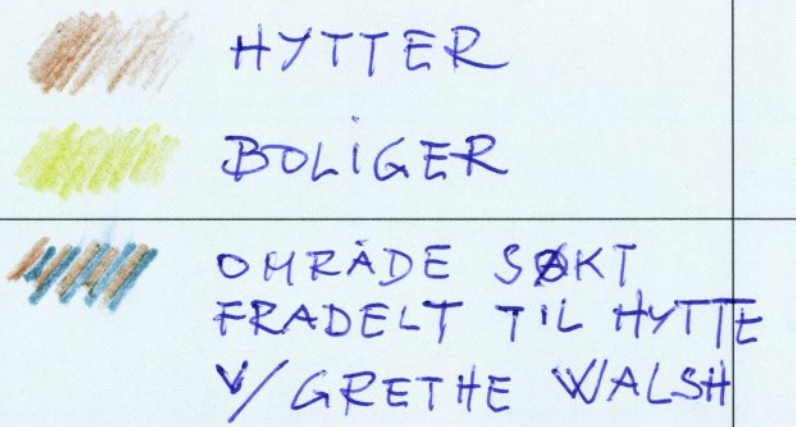 HYTTER
BOLIGER
OMRÅDE SØKT
FRADELT TIL HYTTE
V/GRETHE WALSH